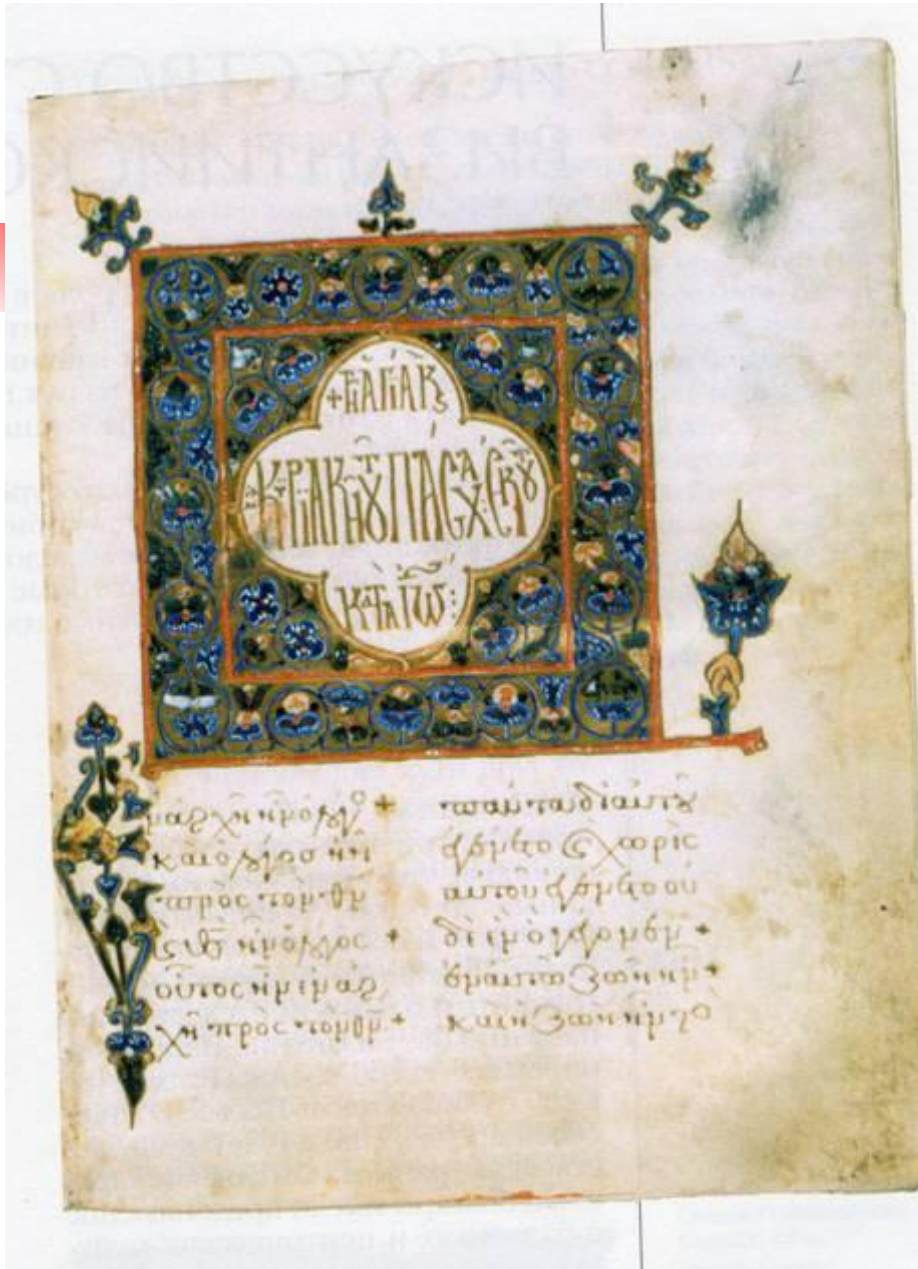 1
+ Τῇ ἁγίᾳ κ
κυριακῇ τοῦ πάσχα: ἐκ τοῦ
κατὰ Ἰω:
Ἐν ἀρχῆ ἦν ὁ λόγο +
καὶ ὁ λόγος ἦν
πρὸς τὸν θν
κ θς ἦν ὁ λόγος +
οὗτος ἦν ἐν ἀρ
χῆ πρὸς τὸν θν +
πάντα δι αὐτοῦ
ἐγένετο κ χωρὶς
αὐτοῦ ἐγένετο οὐ
δὲ ἓν ὃ γέγονεν +
ἐν αὐτῶ ζωὴ ἦν +
καὶ ἡ ζωὴ ἦν τὸ